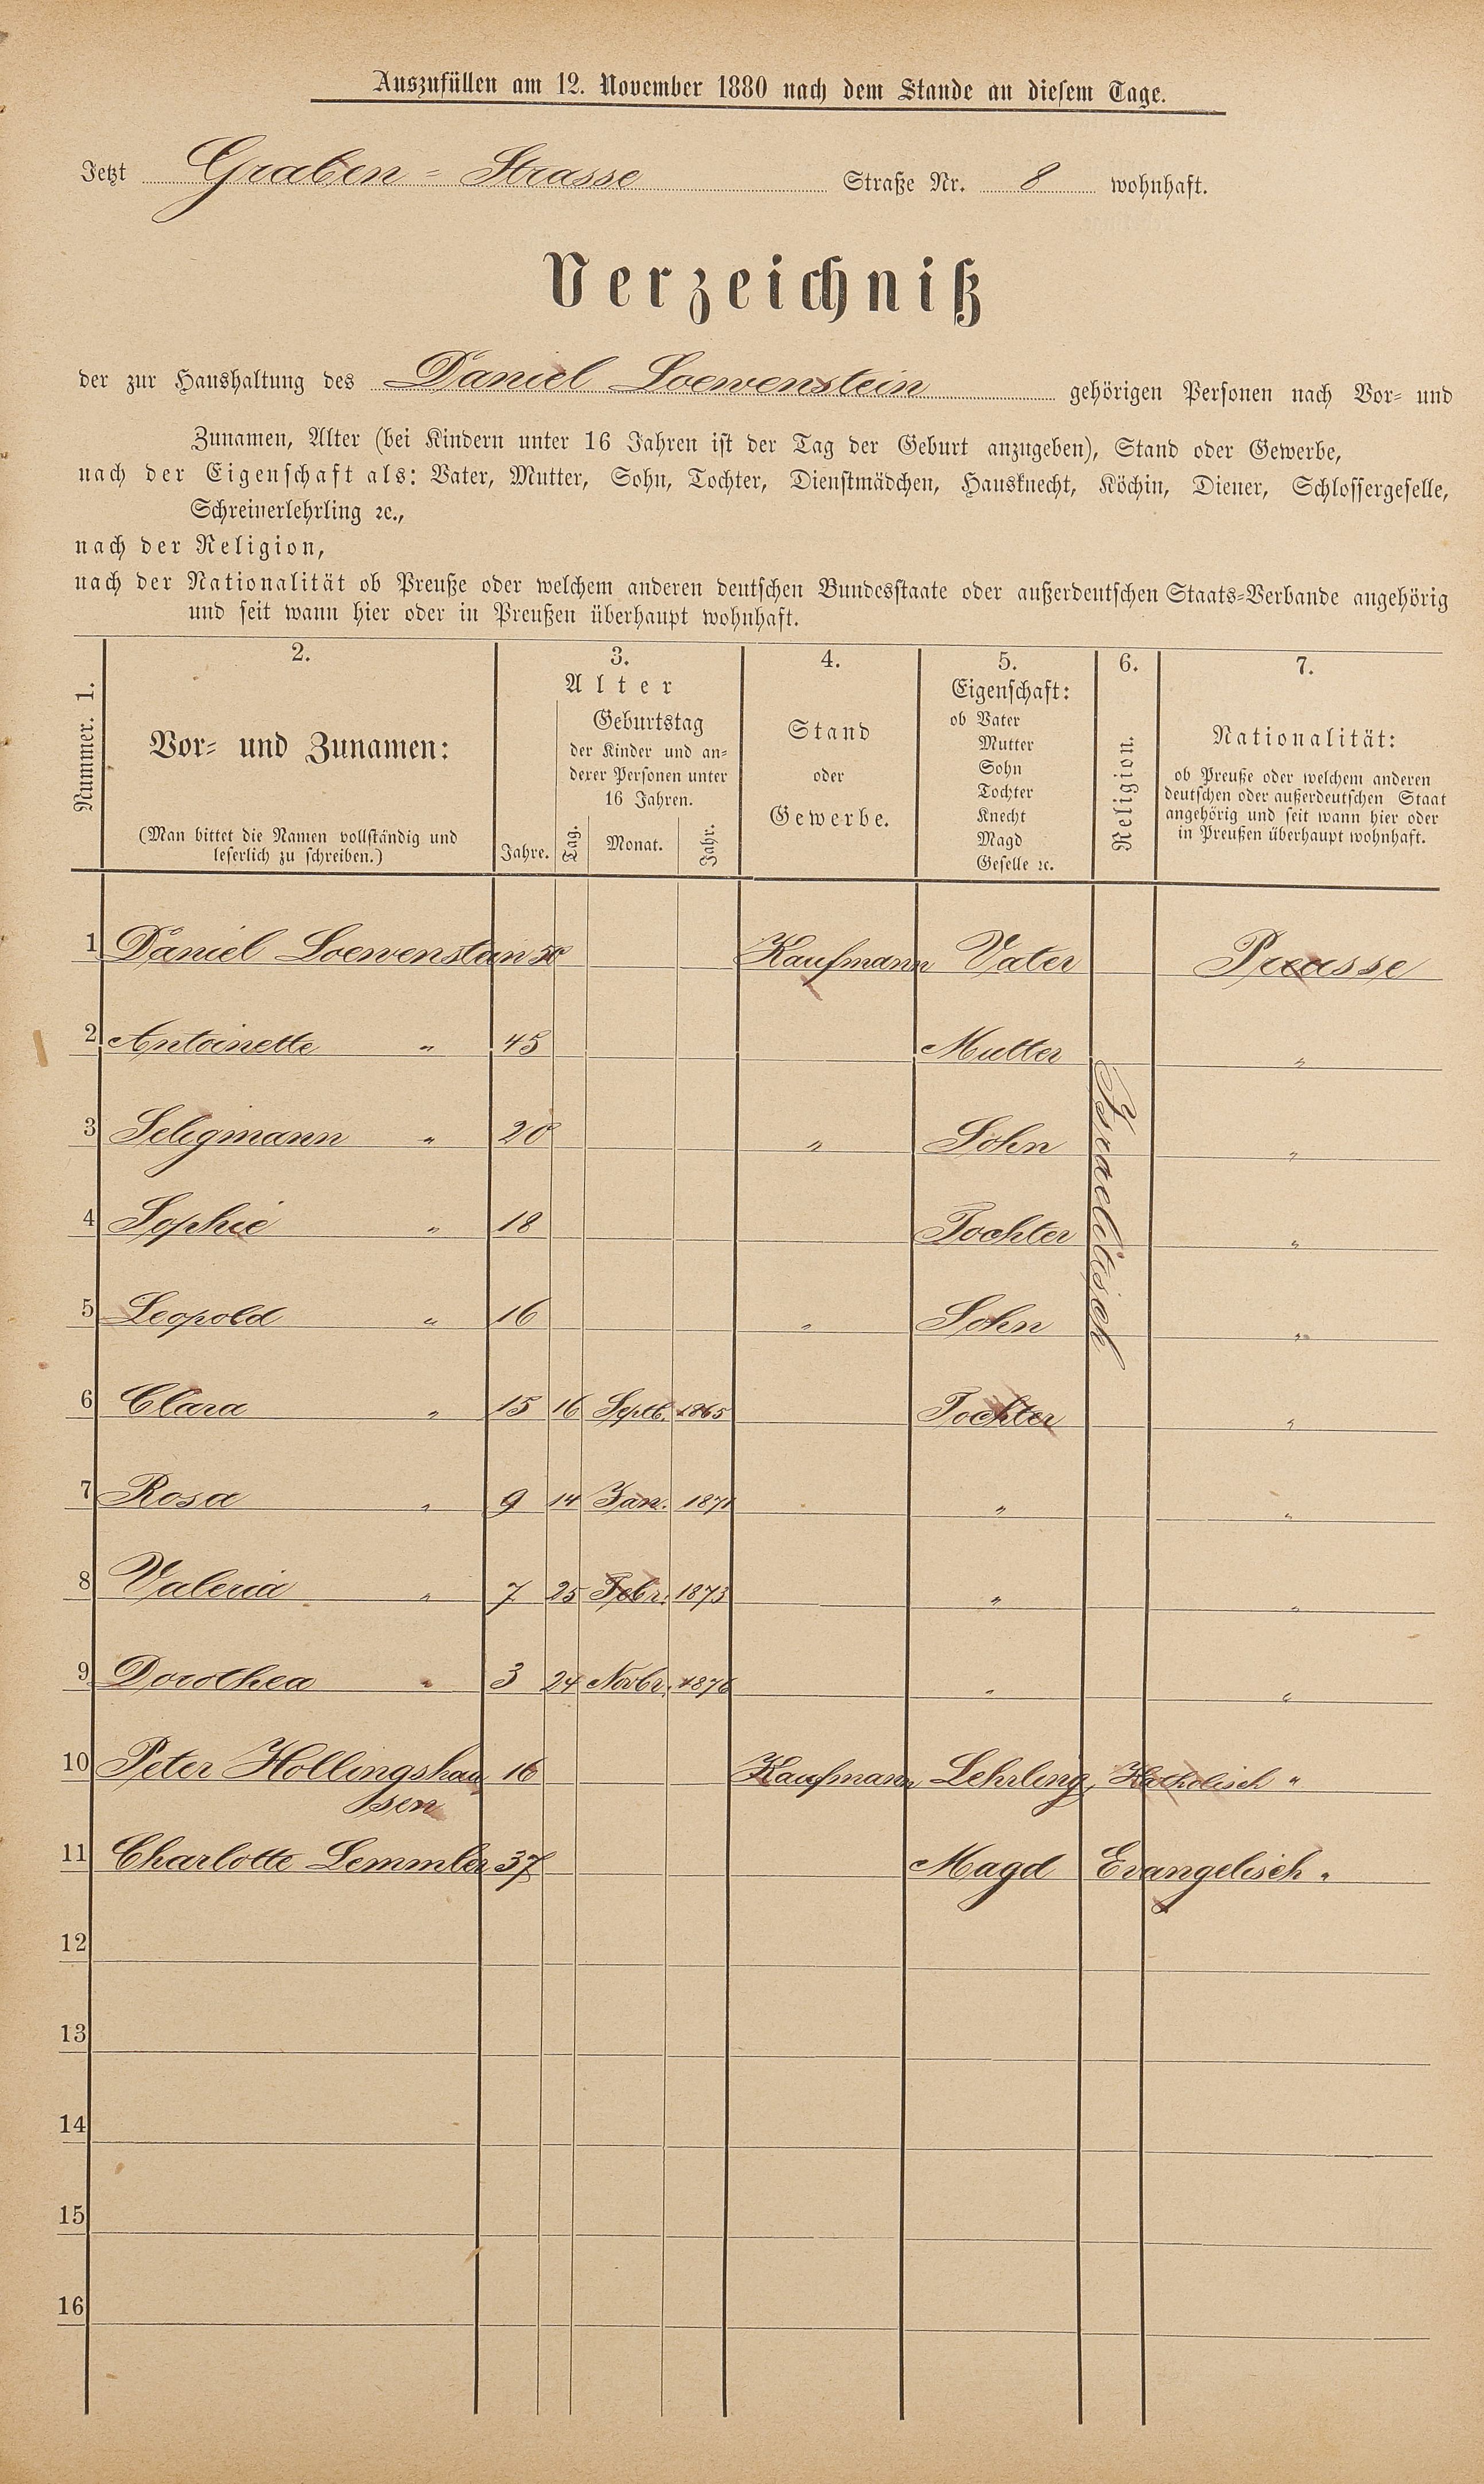 Auszufüllen am 12. November 1880 nach dem Stande an diesem Tage.
Jetzt Graben-Strasse Straße Nr. 8 wohnhaft.
Verzeichniß
der zur Haushaltung des Daniel Loewenstein gehörigen Personen nach Vor- und
Zunamen, Alter (bei Kindern unter 16 Jahren ist der Tag der Geburt anzugeben), Stand oder Gewerbe,
nach der Eigenschaft als: Vater, Mutter, Sohn, Tochter, Dienstmädchen, Hausknecht, Köchin, Diener, Schlossergeselle,
Schreinerlehrling ꝛc.,
nach der Religion,
nach der Nationalität ob Preuße oder welchem anderen deutschen Bundesstaate oder außerdeutschen Staats-Verbande angehörig
und seit wann hier oder in Preußen überhaupt wohnhaft.
Nummer. 1.
2.
Vor- und Zunamen:
(Man bittet die Namen vollständig und
leserlich zu schreiben.)
3.
Alter
Jahre.
Geburtstag
der Kinder und an-
derer Personen unter
16 Jahren.
Tag. Monat. Jahr.
4.
Stand
oder
Gewerbe.
5.
Eigenschaft:
ob Vater
Mutter
Sohn
Tochter
Knecht
Magd
Geselle ꝛc.
6.
Religion.
7.
Nationalität:
ob Preuße oder welchem anderen
deutschen oder außerdeutschen Staat
angehörig und seit wann hier oder
in Preußen überhaupt wohnhaft.
1 Daniel Loewenstein 50 Kaufmann Vater Preusse
2 Antoinette " 45 Mutter "
Israelitisch
3 Seligmann " 20 " Sohn "
4 Sophie " 18 Tochter "
5 Leopold " 16 " Sohn "
6 Clara " 15 16 Septb. 1865 Tochter "
7 Rosa " 9 14 Jan. 1871 " "
8 Valeria " 7 25 Febr. 1873 " "
9 Dorothea " 3 24 Novbr. 1876 " "
10 Peter Hollingshau 16 Kaufmann Lehrling, Katholisch "
sen
11 Charlotte Lemmler 37 Magd Evangelisch "
12
13
14
15
16